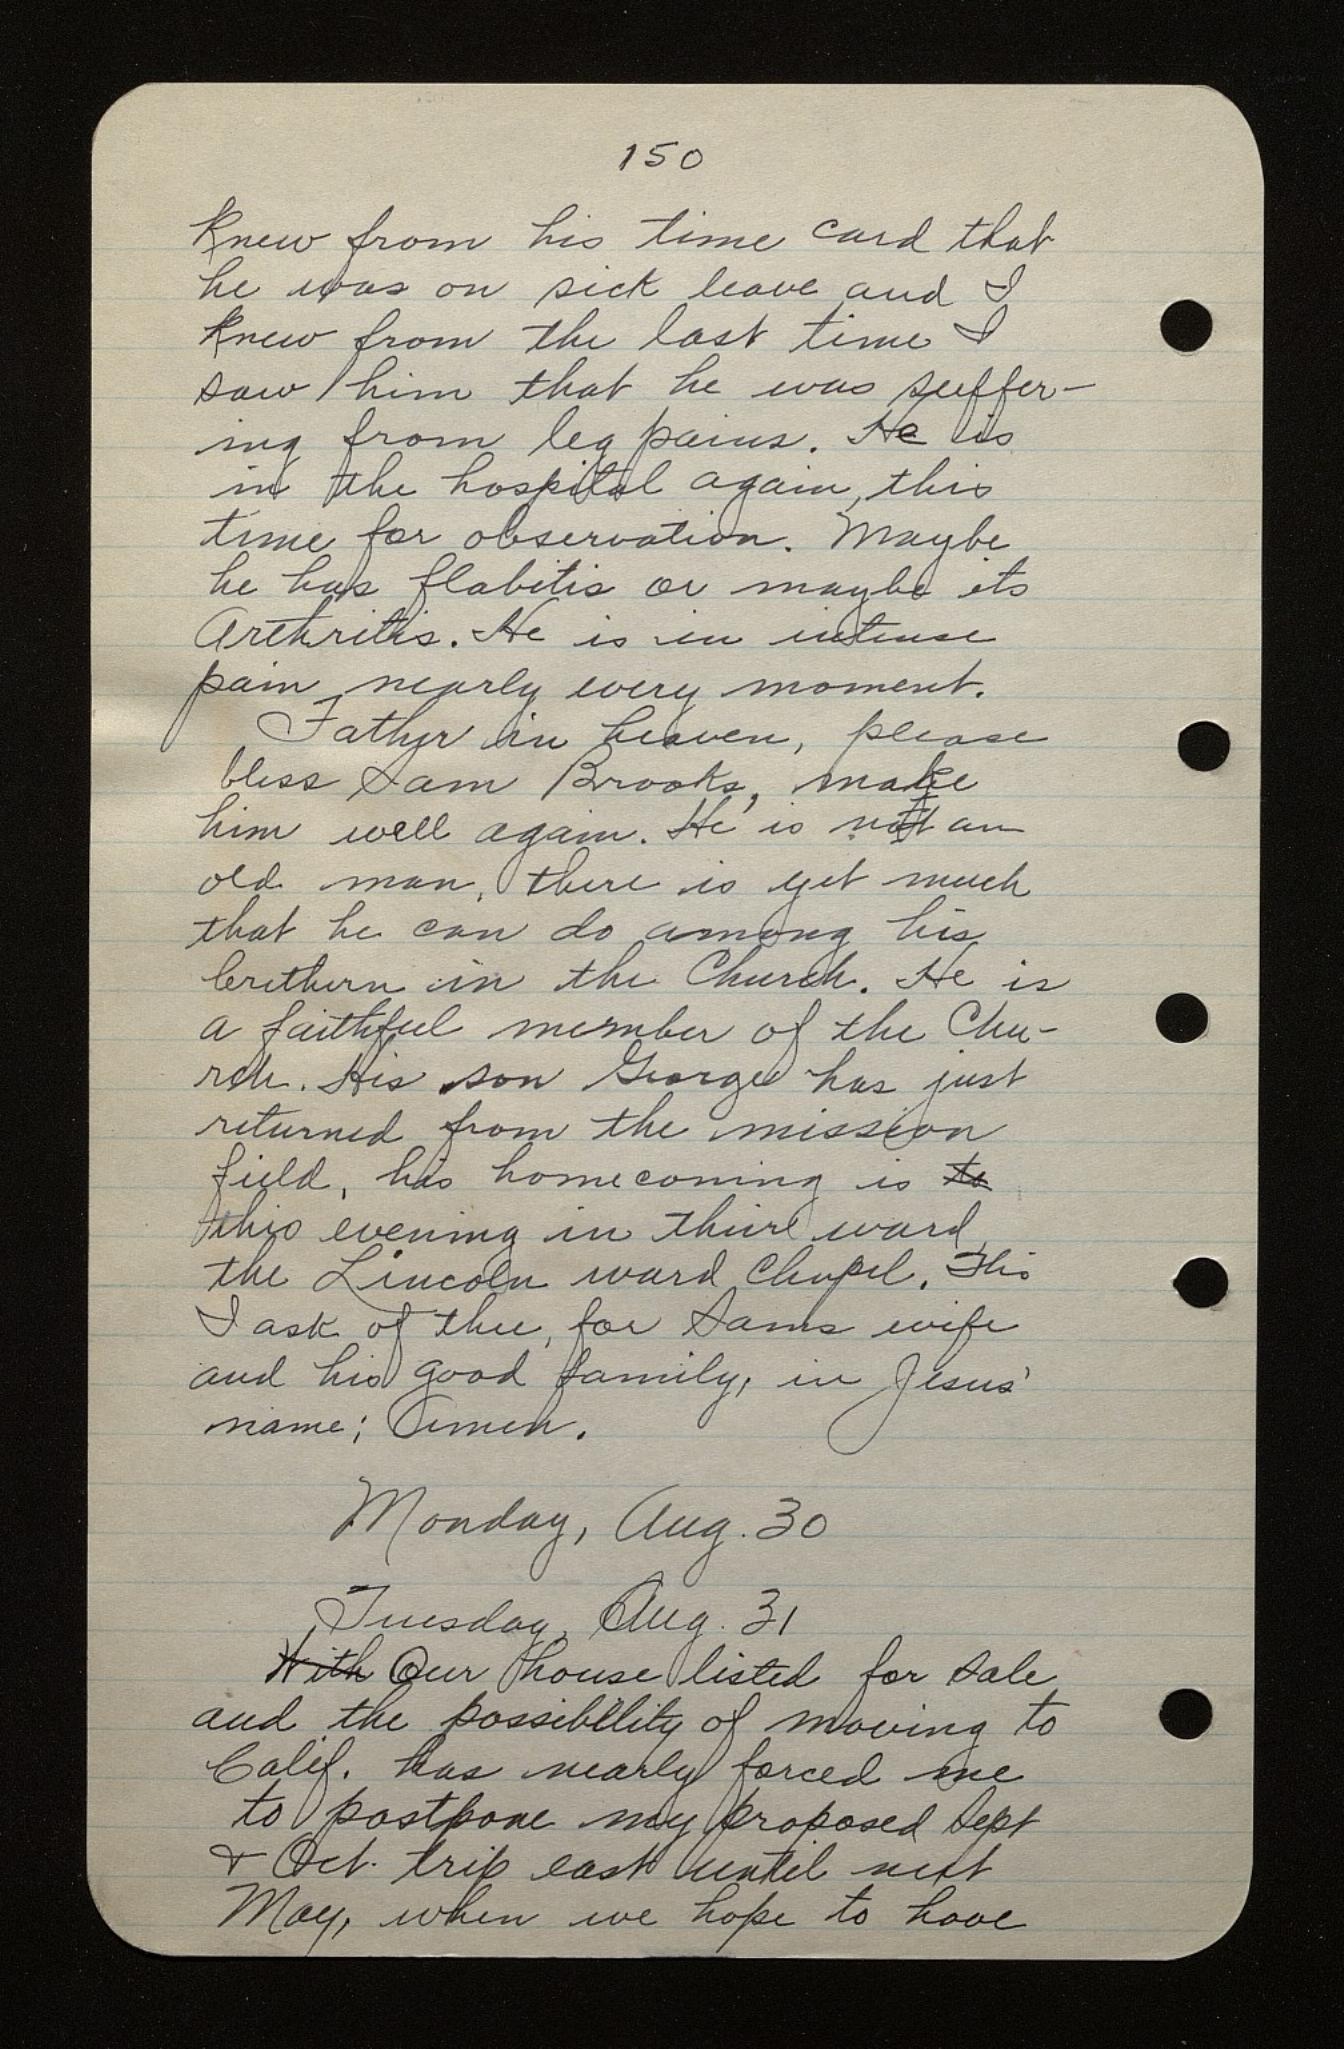 150
knew from his time card that
he was on sick leave and I
knew from the last time I
saw him that he was suffer-
ing from leg pains. He is
in the hospital again, this
time for observation. Maybe
he has flabitis or maybe its
Arthritis. He is in intense
pain nearly every moment.
Father in heaven, please
bless Sam Brooks, make
him well again. He is not an
old man, there is yet much
that he can do among his
brethern in the Church. He is
a faithful member of the Chu-
rch. His son George has just
returned from the mission
field, his homecoming is to
this evening in thire ward,
the Lincoln ward Chapel. This
I ask of thee, for Sams wife
and his good family, in Jesus'
name; Amen.
Monday, Aug. 30
Tuesday, Aug. 31
With Our house listed for sale
and the possibility of moving to
Calif. has nearly forced me
to postpone my proposed Sept
& Oct. trip east until next
May, when we hope to have